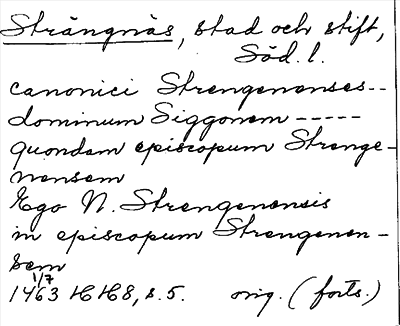 Strängnäs, stad och stift,
Söd. l.
canonici Strengenenses--
dominum Siggonem -----
quondam episcopum Strenge-
nensem
Ego N. Strengenensis
in episcopum Strengenen-
sem
1/7
1463 HH8, s. 5. orig. (forts.)